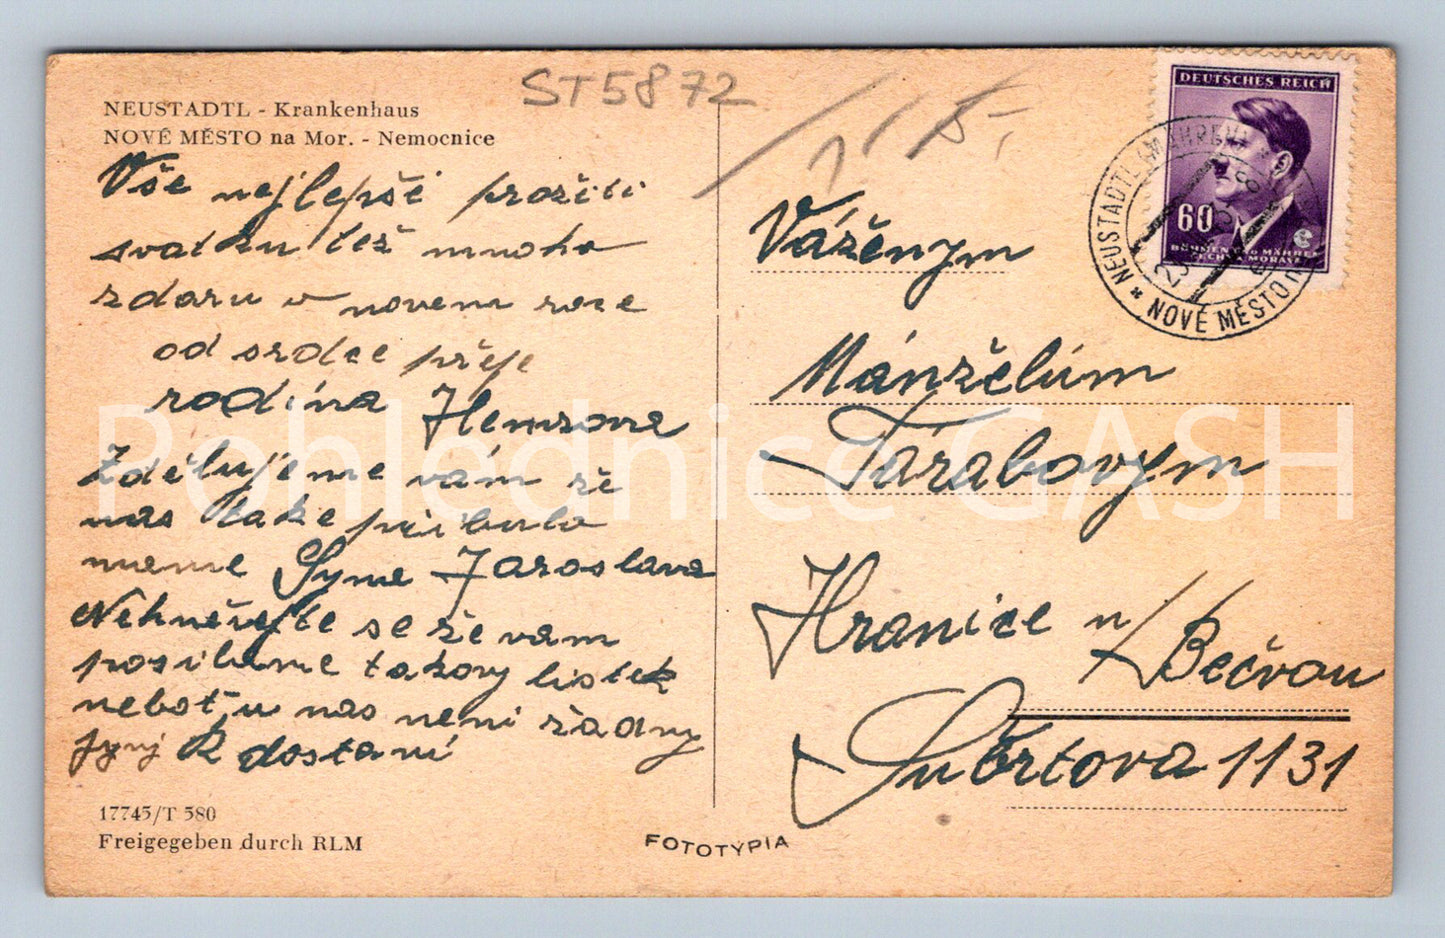 ST5872
1 5,-
NEUSTADTL - Krankenhaus
NOVÉ MĚSTO na Mor. - Nemocnice
Vše nejlepší prožití
svatku též mnoho
zdaru v novem roce
od srdce přeje
rodina
Zdělujeme vám že
nas take přibulo
mame Syna Jaroslava
Nehněvejte se že vam
posilame takovy listek
neboť u nas neni žadny
jynj k dostaní
17745/T 580
Freigegeben durch RLM
FOTOTYPIA
DEUTSCHES REICH
60
BÖHMEN UND MÄHREN
ČECHY A MORAVA
NEUSTADTL
NOVÉ MĚSTO
Váženym
Mánželům
Tárabovym
Hranice n/Bečvou
Šubrtova 1131
Pohlednice GASH